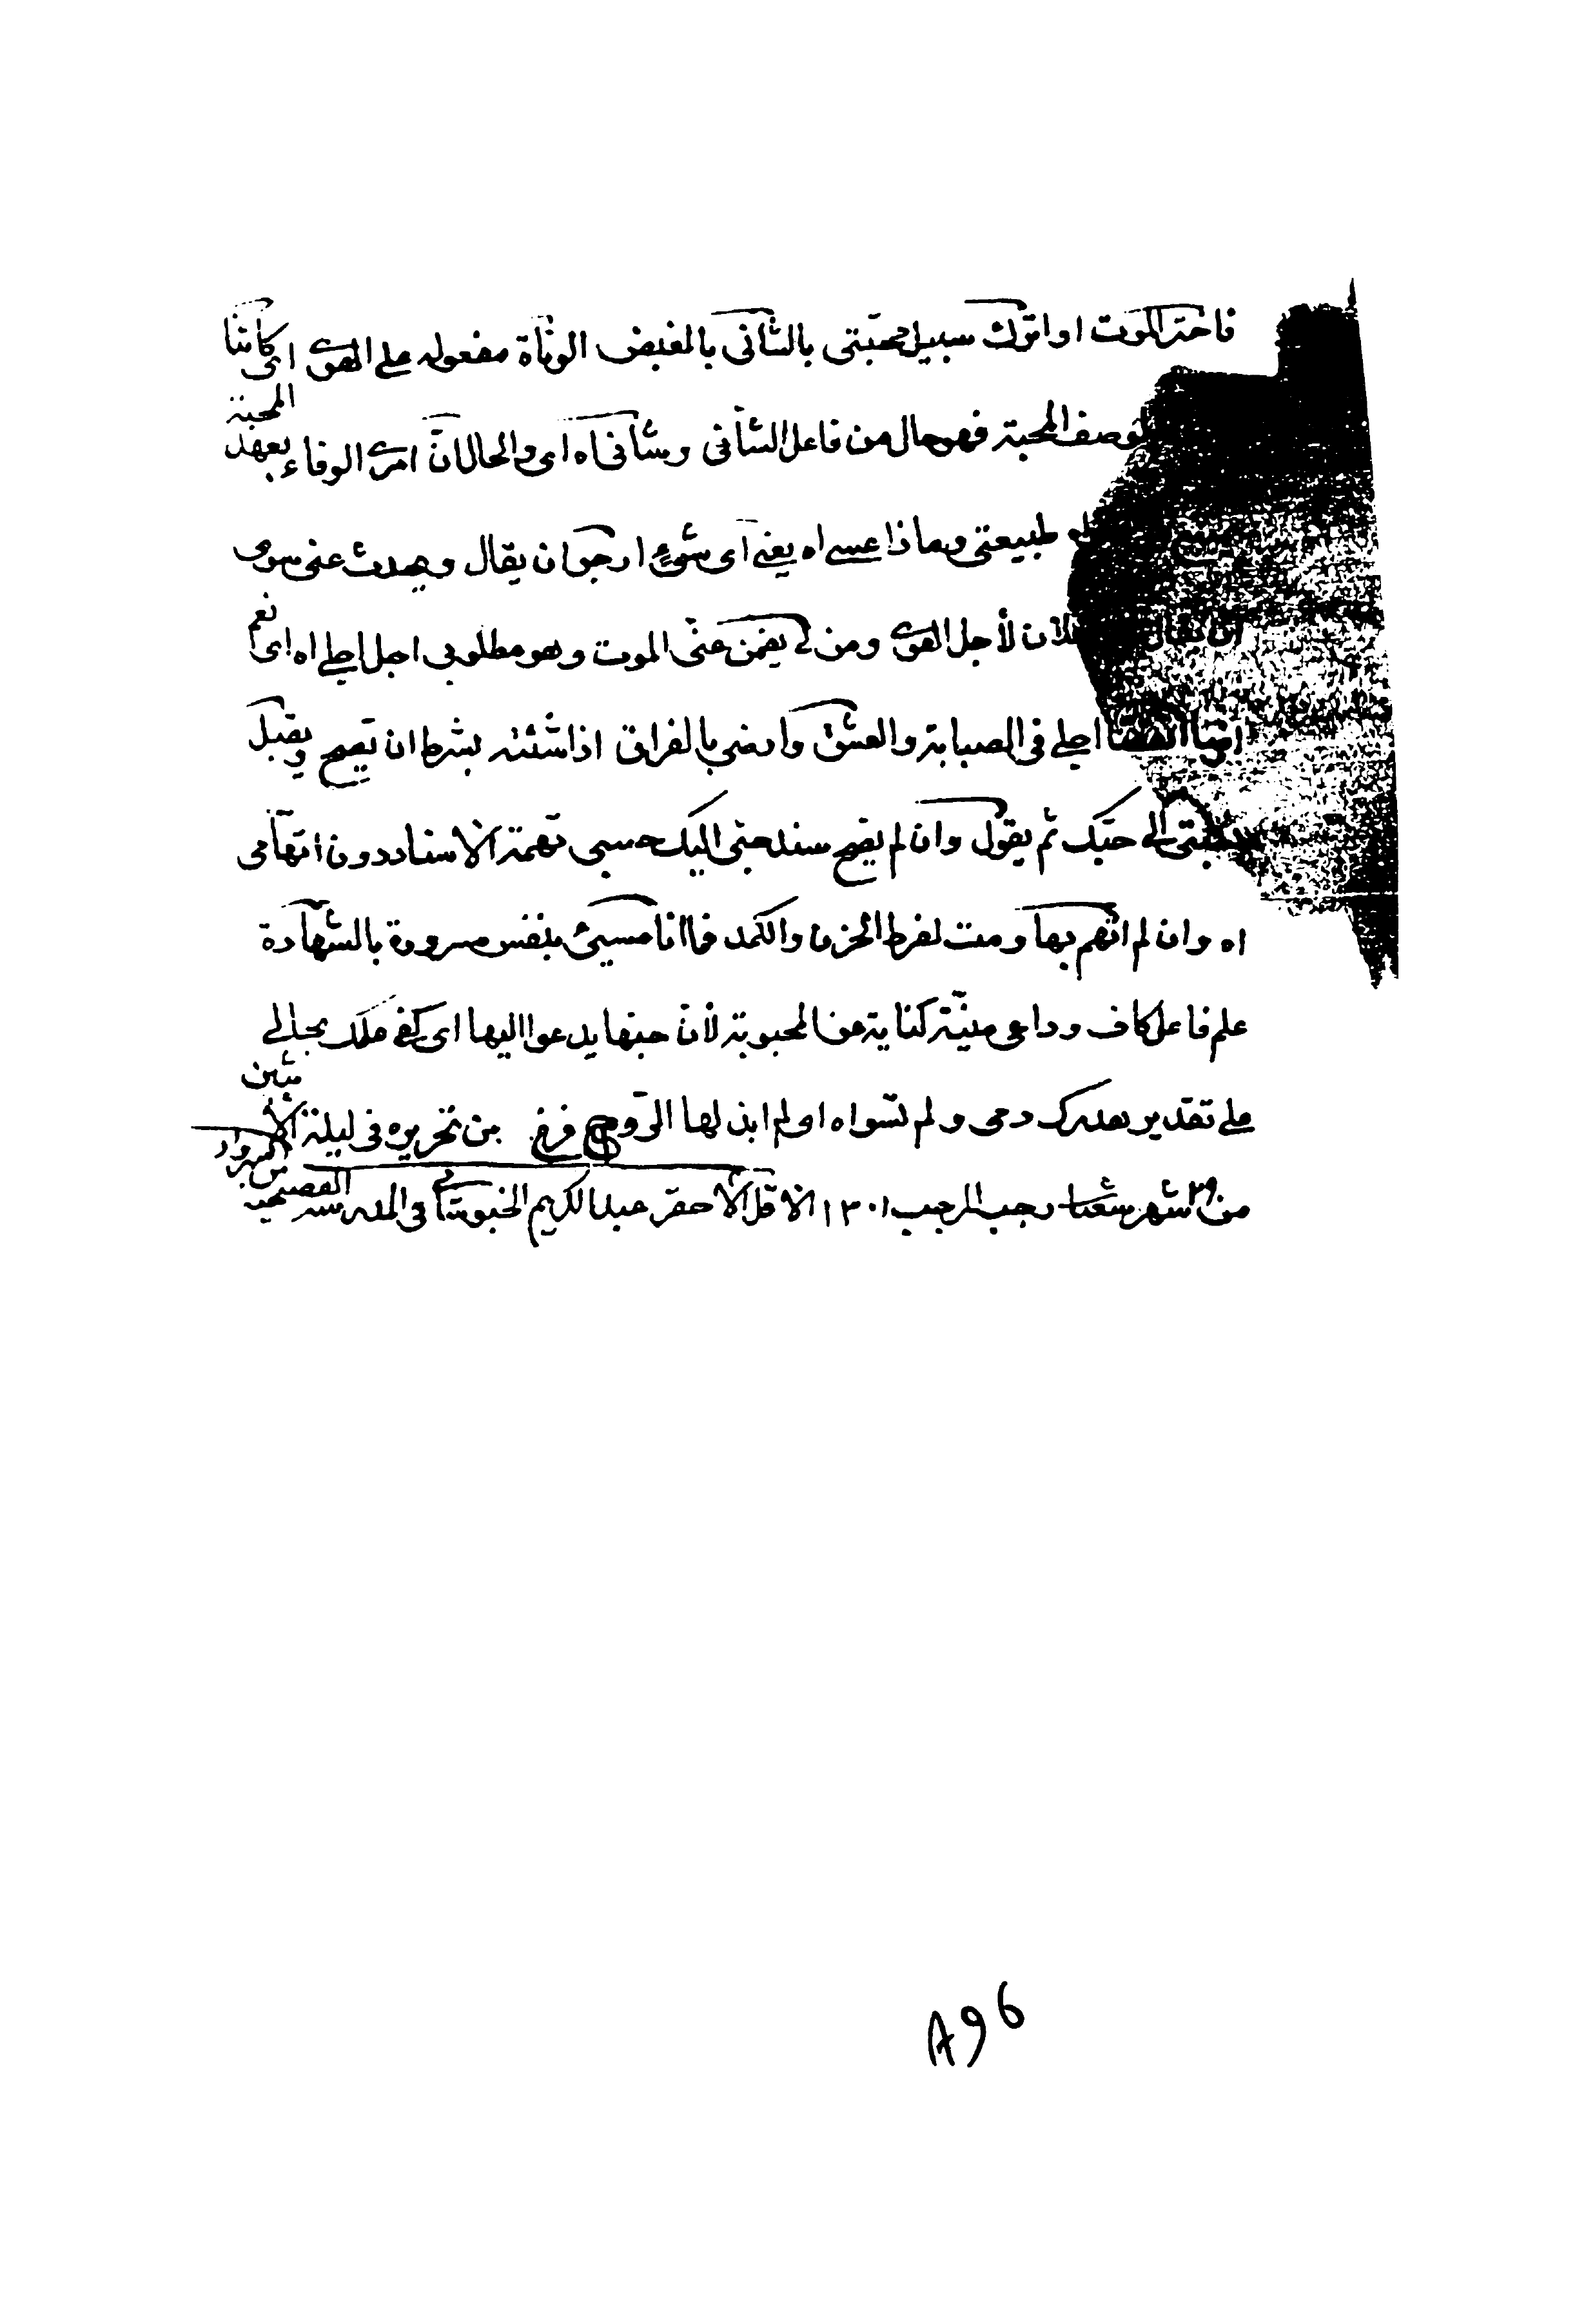 فاختر الموت او اترك سبيل محبّتى بالشّانى بالمغبض الوفاة مفعوله على الهوى اى كائنا
بوصف المحبة فهو حال من فاعل الشّانى وشأنى اه اى والحال انّ امرى الوفاء بعهد المحبة
طبيعتى وماذا عسى اه يعنى اى شىء ارجو ان يقال و يحدث عنى سوى
ان يقال فلان لأجل الهوى ومن لى يضمن عنّى الموت وهو مطلوبى اجل اجلى اه اى نعم
اجلى فى الصبابة والعشق وارضى بالفراق اذا شئته بشرط ان تصح و يقبل
الى حبّك ثم يقول وان لم يصح سند حبّى اليك حسبى تهمة الاسناد دون اتهامى
اه وان لم اتهم بها ومت لفرط الحزن والكمد فما انا مسيئ بنفس مسرورة بالشّهادة
علم فاعل كاف وداعى منيّة كناية عن المحبوبة لأنّ حبّها يدعو اليها اى كفى علمك بحالى
على تقدير هدرك دمى ولم تسواه اى لم ابذلها الرّوح فرغ من تحريره فى ليلة الاثنين
من ٢٩ شهر رجب المرجب ١٣٠١ الاقل الأحقر عبد الكريم الخبوشانى فى المدرسة الفصيحية من السبزوار
٨٩٦